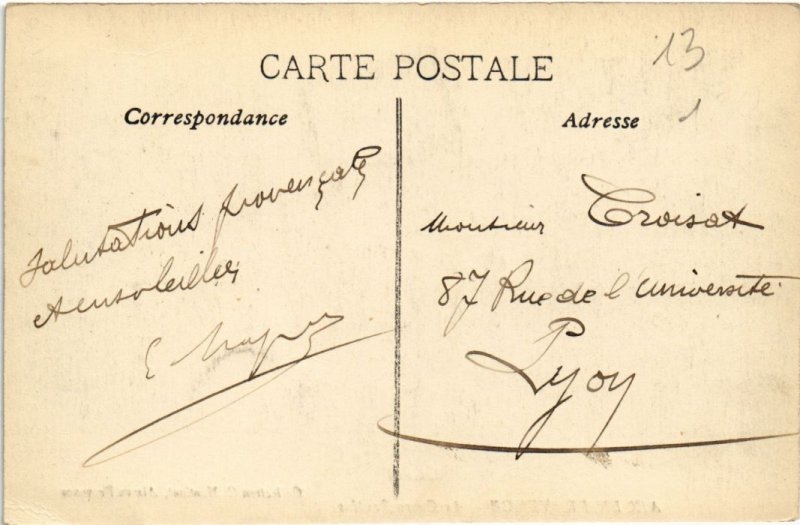 13
1
CARTE POSTALE
Correspondance
Salutations provençales
et ensoleillées
E
Adresse
Monsieur Croisat
87 Rue de l'Université
Lyon